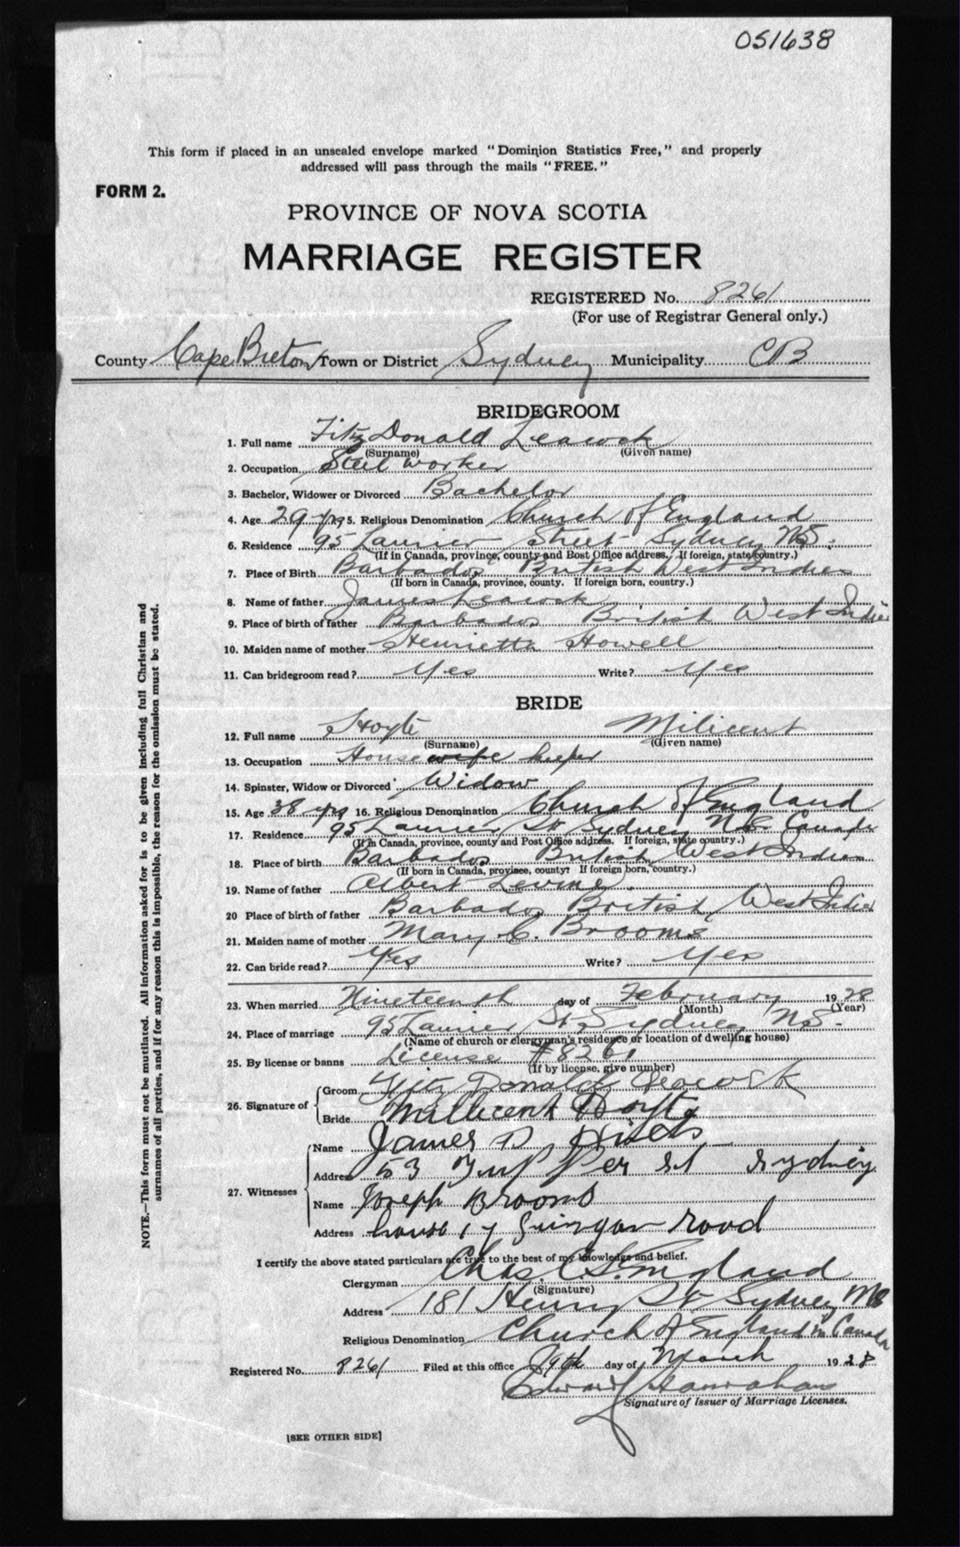 051638
This form if placed in an unsealed envelope marked "Dominion Statistics Free," and properly
addressed will pass through the mails "FREE."
FORM 2.
PROVINCE OF NOVA SCOTIA
MARRIAGE REGISTER
REGISTERED No. 8261
(For use of Registrar General only.)
County Cape Breton Town or District Sydney Municipality CB
BRIDEGROOM
1. Full name Fitz Donald Leacock
(Surname) (Given name)
2. Occupation Steel worker
3. Bachelor, Widower or Divorced Bachelor
4. Age 29 yrs 5. Religious Denomination Church of England
6. Residence 95 Laurier Street Sydney NS.
(If in Canada, province, county and Post Office address. If foreign, state country.)
7. Place of Birth Barbados British West Indies
(If born in Canada, province, county. If foreign born, country.)
8. Name of father James Leacock
9. Place of birth of father Barbados British West Indies
10. Maiden name of mother Henrietta Howell
11. Can bridegroom read? Yes Write? Yes
BRIDE
12. Full name Hoyte Milicent
(Surname) (Given name)
13. Occupation House wife keeper
14. Spinster, Widow or Divorced Widow
15. Age 38 yrs 16. Religious Denomination Church of England
17. Residence 95 Laurier St Sydney N.S. Canada
(If in Canada, province, county and Post Office address. If foreign, state country.)
18. Place of birth Barbados British West Indies
(If born in Canada, province, county? If foreign born, country.)
19. Name of father Albert
20 Place of birth of father Barbados British West Indies
21. Maiden name of mother Mary C. Brooms
22. Can bride read? Yes Write? Yes
23. When married Nineteenth day of February 1928
(Month) (Year)
24. Place of marriage 95 Laurier St. Sydney NS.
(Name of church or clergyman's residence or location of dwelling house)
25. By license or banns License #8261
(If by license, give number)
26. Signature of Groom Fitz Donald Leacock
Bride Millicent Hoyte
27. Witnesses Name James D
Address 53 St Sydney
Name Joseph Brooms
Address house 17 road
I certify the above stated particulars are true to the best of my knowledge and belief.
Clergyman Chas. England
(Signature)
Address 181 Henry St Sydney NS
Religious Denomination Church of England in Canada
Registered No. 8261 Filed at this office day of March 1928
Edward Hanrahan
Signature of Issuer of Marriage Licenses.
[SEE OTHER SIDE]
NOTE.—This form must not be mutilated. All information asked for is to be given including full Christian and
surnames of all parties, and if for any reason this is impossible, the reason for the omission must be stated.